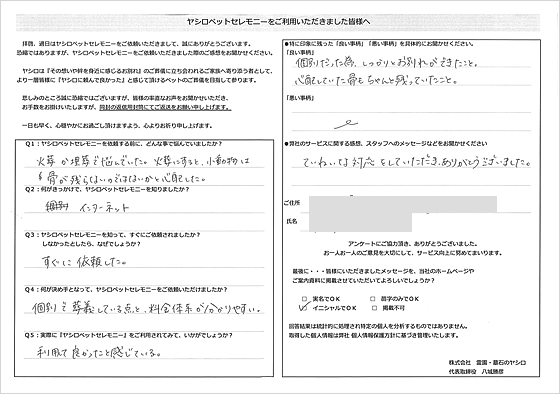 ヤシロペットセレモニーをご利用いただきました皆様へ
拝啓、過日はヤシロペットセレモニーをご依頼いただきまして、誠にありがとうございます。
恐縮ではありますが、ヤシロペットセレモニーをご依頼いただきました際のご感想をお聞かせください。
ヤシロは『その想いや絆を身近に感じるお別れ』のご葬儀に立ち会われるご家族へ寄り添う者として、
より一層皆様に『ヤシロに頼んで良かった』と感じて頂けるペットのご葬儀を目指して参ります。
悲しみのところ誠に恐縮ではございますが、皆様の率直なお声をお聞かせいただき、
お手数をお掛けいたしますが、同封の返信用封筒にてご返送をお願い申し上げます。
一日も早く、心穏やかにお過ごし頂けますよう、心よりお祈り申し上げます。
Q1:ヤシロペットセレモニーを依頼する前に、どんな事で悩んでいましたか?
火葬か埋葬で悩んでいた。火葬にすると、小動物は
骨が残らないのではないかと心配した。
Q2:何がきっかけで、ヤシロペットセレモニーを知りましたか?
インターネット
Q3:ヤシロペットセレモニーを知って、すぐにご依頼されましたか?
しなかったとしたら、なぜでしょうか?
すぐに依頼した。
Q4:何が決め手となって、ヤシロペットセレモニーをご依頼いただけましたか?
個別で葬義している点と、料金体系が分かりやすい。
Q5:実際に『ヤシロペットセレモニー』をご利用されてみて、いかがでしょうか?
利用して良かったと感じている。
●特に印象に残った「良い事柄」「悪い事柄」を具体的にお聞かせください。
「良い事柄」
個別だった為、しっかりとお別れができたこと。
心配していた骨もちゃんと残っていたこと。
「悪い事柄」
●弊社のサービスに関する感想、スタッフへのメッセージなどをお聞かせください
ていねいな対応をしていただき、ありがとうございました。
ご住所
氏名
アンケートにご協力頂き、ありがとうございました。
お一人お一人のご意見を大切にして、サービス向上に努めてまいります。
最後に・・・皆様にいただきましたメッセージを、当社のホームページや
ご案内資料に掲載させていただいてよろしいでしょうか?
□ 実名でOK □ 苗字のみでOK
☑ イニシャルでOK □ 掲載不可
回答結果は統計的に処理され特定の個人を分析するものではありません。
取得した個人情報は弊社 個人情報保護方針に基づき管理いたします。
株式会社 霊園・墓石のヤシロ
代表取締役 八城勝彦